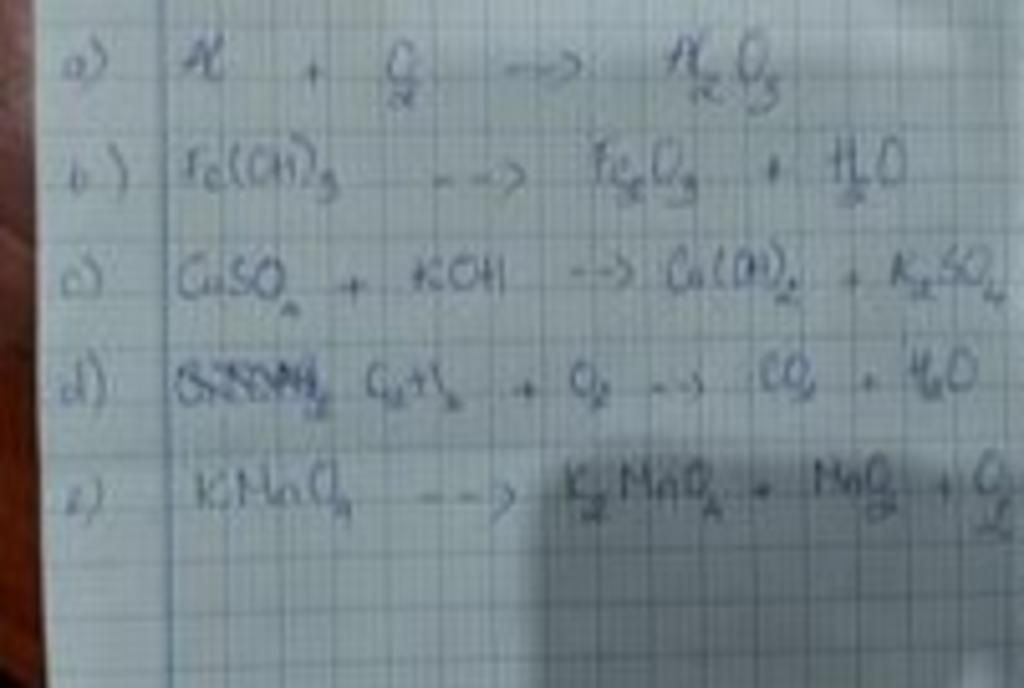 a) Al + O₂ --> Al₂O₃
b) Fe(OH)₃ --> Fe₂O₃ + H₂O
c) CuSO₄ + KOH --> Cu(OH)₂ + K₂SO₄
d) + O₂ --> CO₂ + H₂O
e) KMnO₄ --> K₂MnO₄ + MnO₂ + O₂